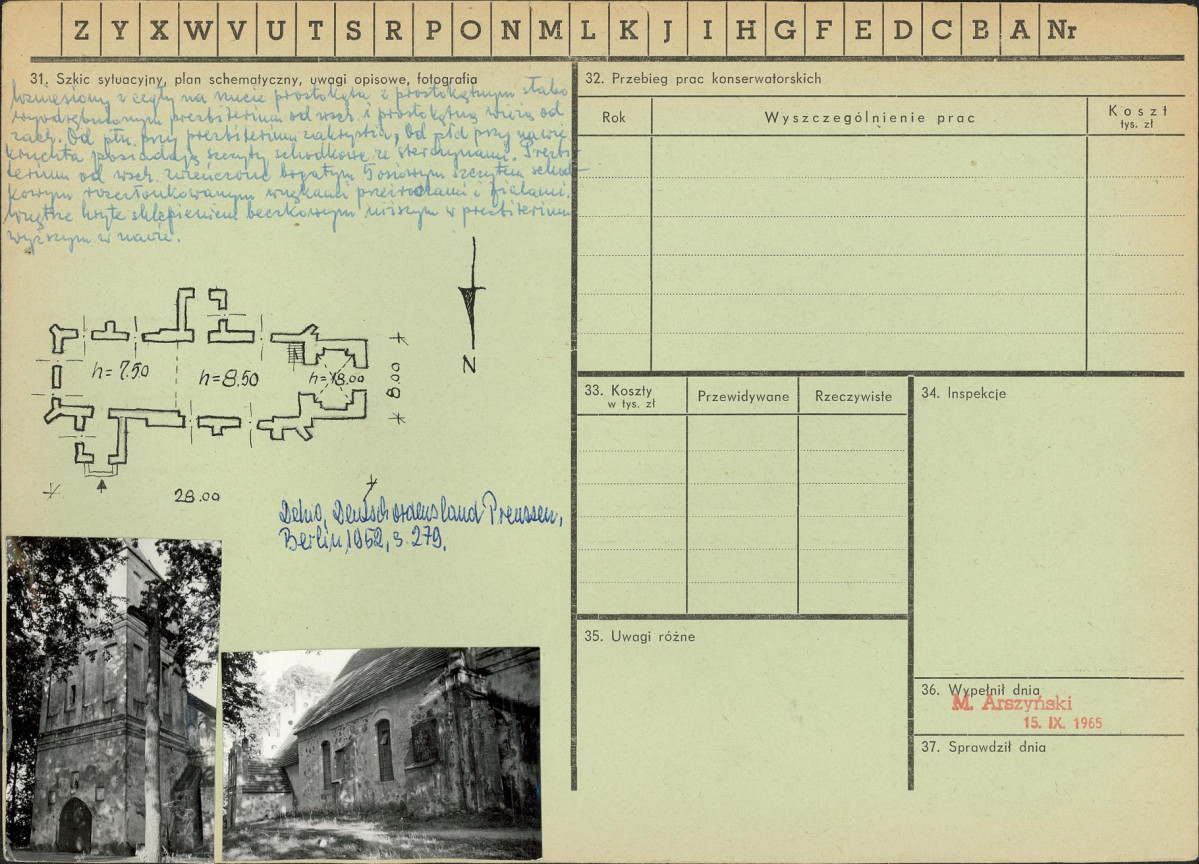 Z Y X W V U T S R P O N M L K J I H G F E D C B A Nr
31. Szkic sytuacyjny, plan schematyczny, uwagi opisowe, fotografia
Wzniesiony z cegły na rzucie prostokąta z prostokątnym słabo
wyodrębnionym prezbiterium od wsch. i prostokątną wieżą od
zach. Od płn. przy prezbiterium zakrystia, od płd przy nawie
kruchta posiadają szczyty schodkowe ze sterczynami. Prezbi-
terium od wsch. zwieńczone bogatym 5 osiowym szczytem schod-
kowym rozczłonkowanym wnękami przeźroczami i fialami.
Wnętrze kryte sklepieniem beczkowym niższym w prezbiterium
wyższym w nawie.
h=7.50
h=8.50
h=18.00
8.00
N
28.00
Dehio, Deutschordensland Preussen,
Berlin 1952, s. 279.
32. Przebieg prac konserwatorskich
Rok
Wyszczególnienie prac
Koszt
tys. zł
33. Koszty
w tys. zł
Przewidywane
Rzeczywiste
34. Inspekcje
35. Uwagi różne
36. Wypełnił dnia
M. Arszyński
15. IX. 1965
37. Sprawdził dnia